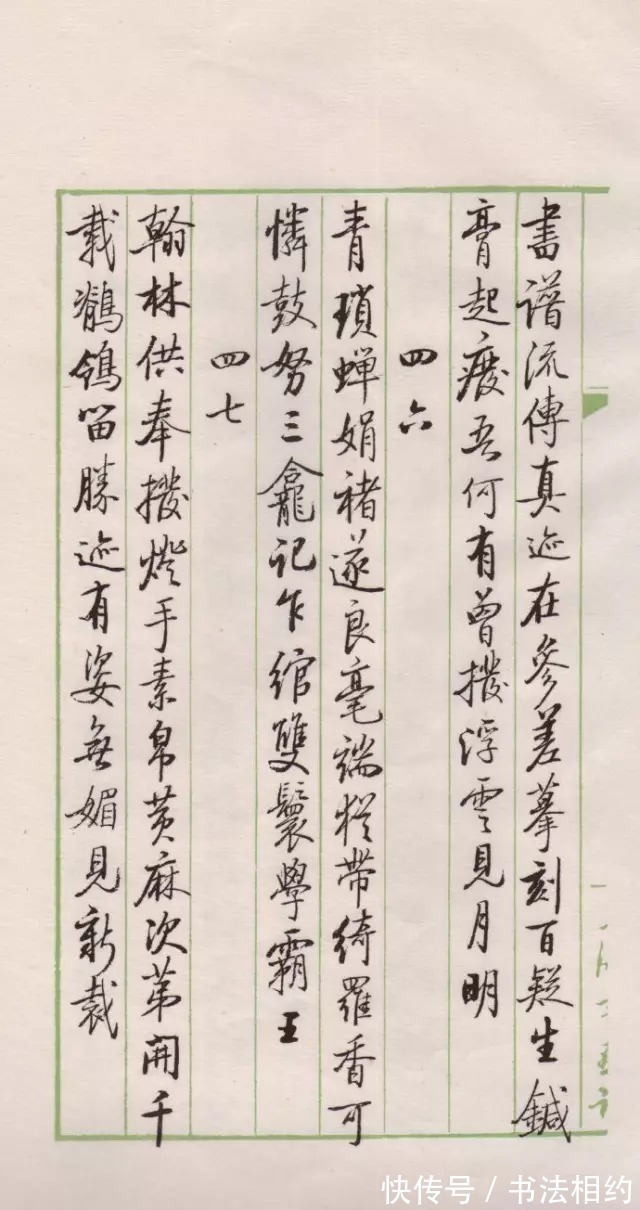 書譜流傳真迹在參差摹刻百疑生鍼
膏起廢吾何有曾撥浮雲見月明
四六
青瑣蟬娟褚遂良毫端猶帶綺羅香可
憐鼓努三龕記乍綰雙鬟學霸王
四七
翰林供奉撥燈手素帛黄麻次苐開千
載鶺鴒留勝迹有姿無媚見新裁
快传号 / 书法相约